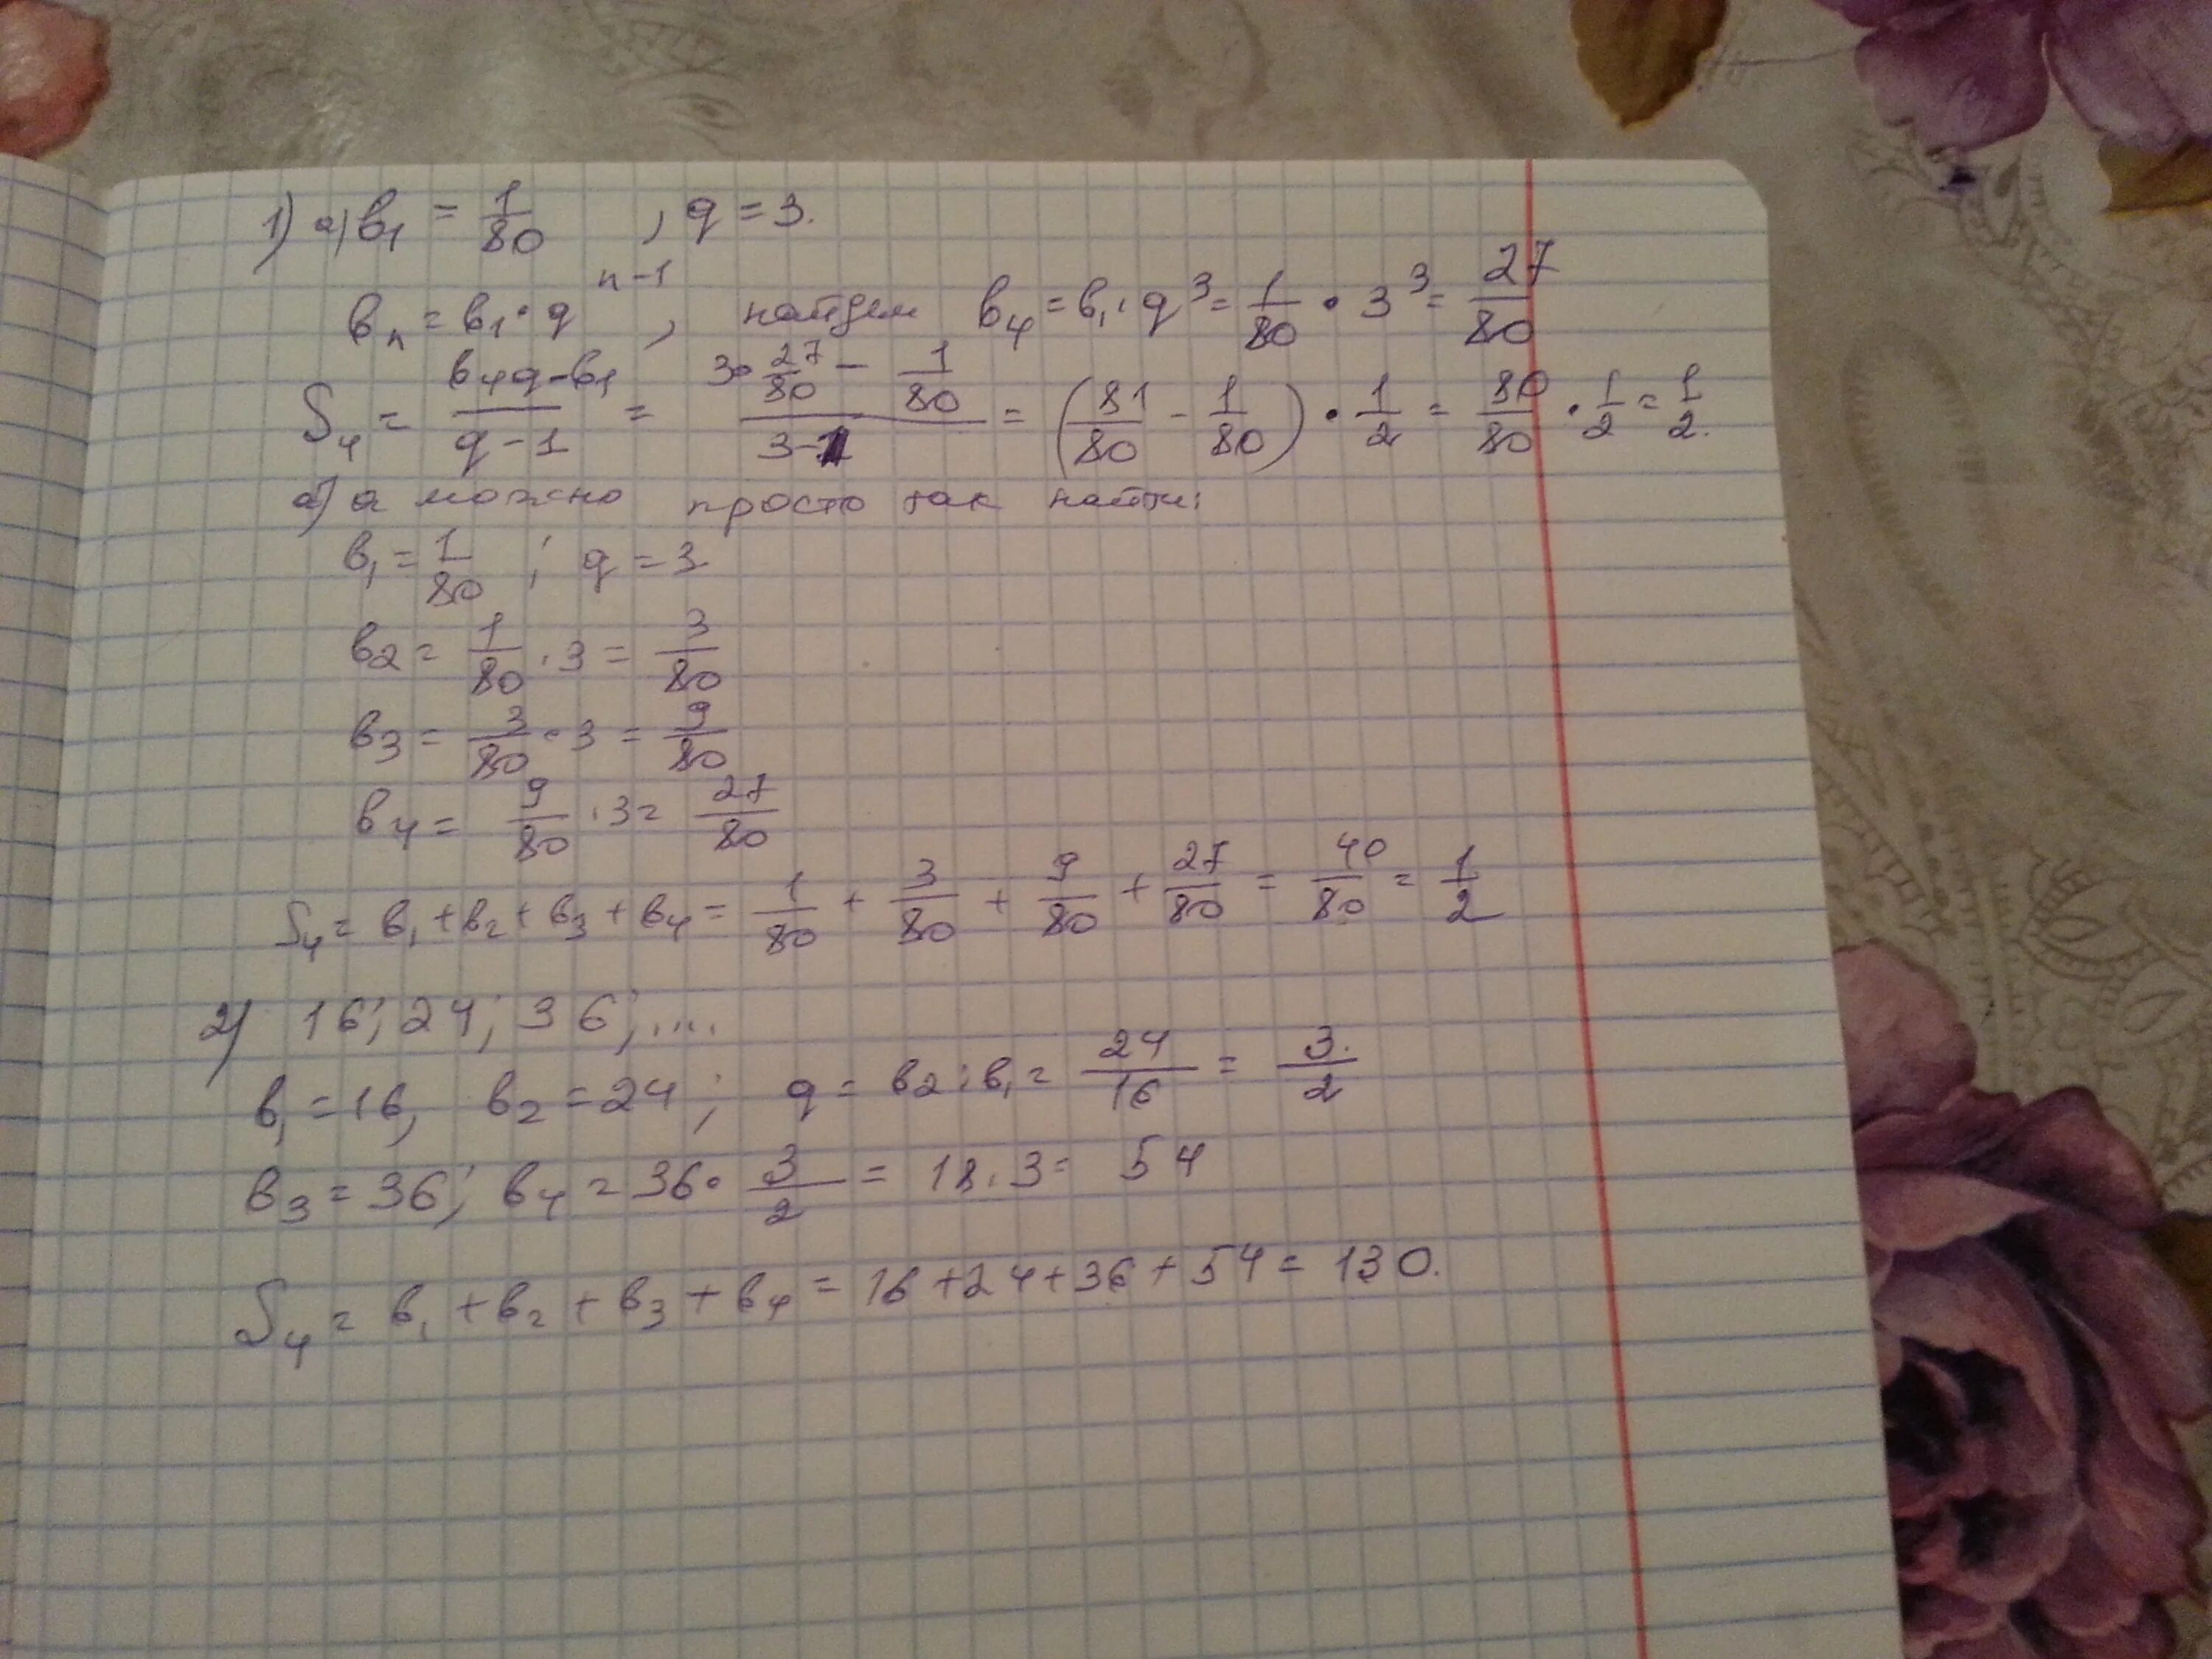 1) а) в₁ = 1/80 , q = 3.
вₙ = в₁ · qⁿ⁻¹ , найдем в₄ = в₁ · q³ = 1/80 · 3³ = 27/80
S₄ = (в₄q - в₁)/(q - 1) = (3 · 27/80 - 1/80)/(3 - 1) = (81/80 - 1/80) · 1/2 = 80/80 · 1/2 = 1/2.
б) а можно просто так найти:
в₁ = 1/80 ; q = 3
в₂ = 1/80 · 3 = 3/80
в₃ = 3/80 · 3 = 9/80
в₄ = 9/80 · 3 = 27/80
S₄ = в₁ + в₂ + в₃ + в₄ = 1/80 + 3/80 + 9/80 + 27/80 = 40/80 = 1/2
2) 16; 24; 36; ....
в₁ = 16, в₂ = 24; q = в₂ : в₁ = 24/16 = 3/2
в₃ = 36; в₄ = 36 · 3/2 = 18 · 3 = 54
S₄ = в₁ + в₂ + в₃ + в₄ = 16 + 24 + 36 + 54 = 130.